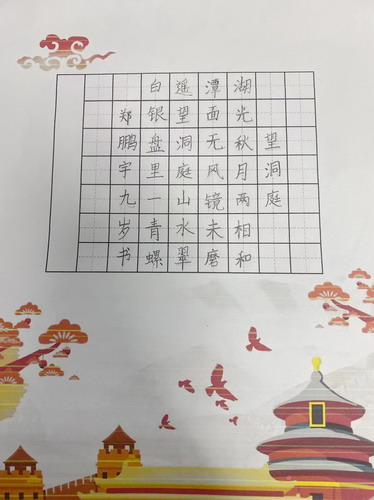 望洞庭
湖光秋月两相和
潭面无风镜未磨
遥望洞庭山水翠
白银盘里一青螺
郑鹏宇九岁书